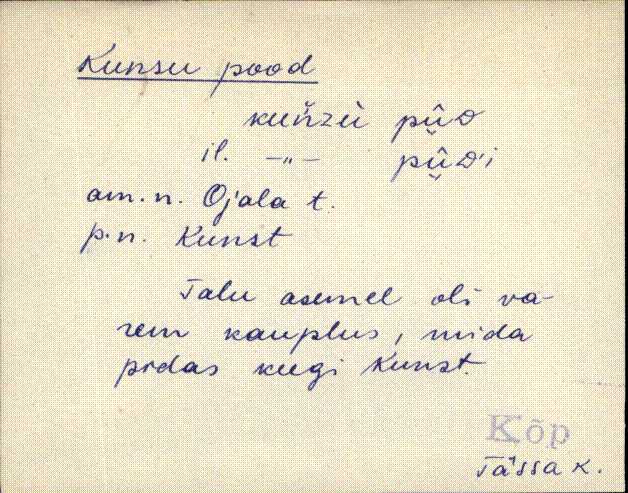 Kunsu pood
kuǹzù pû̬D
il. —„— pû̬D'i
am. n. Ojala t.
p. n. Kunst
Talu asemel oli va-
rem kauplus, mida
pidas keegi Kunst.
Kõp
Tässa k.